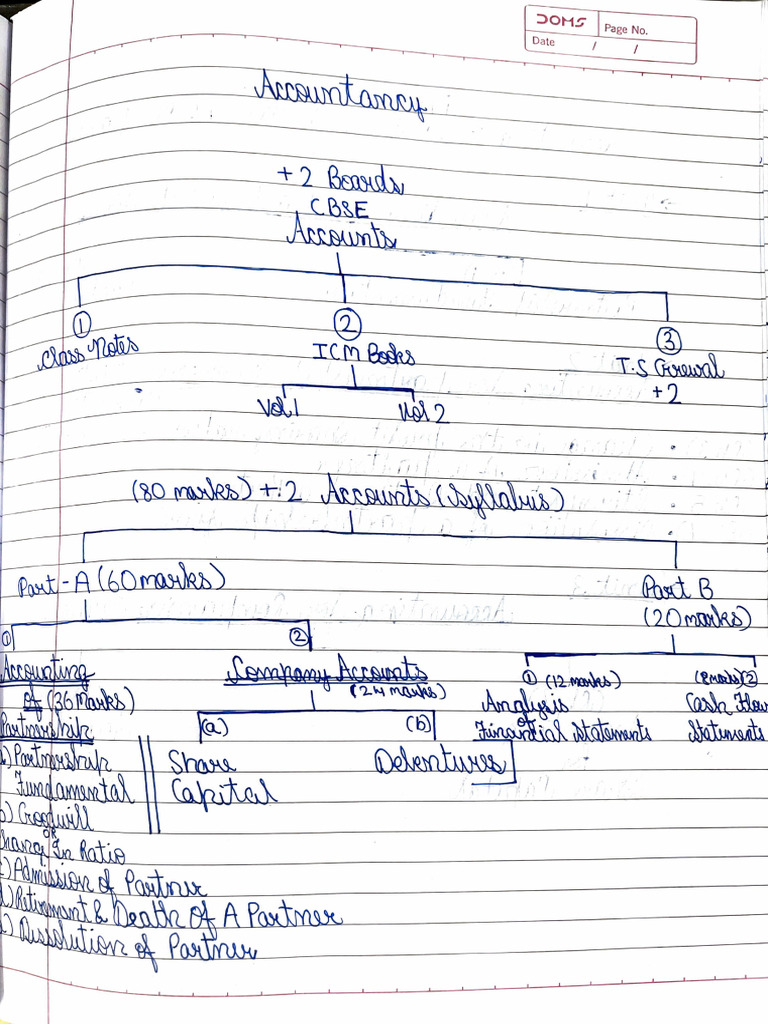 DOMS
Page No.
Date / /
Accountancy
+2 Boards
CBSE
Accounts
① ② ③
Class Notes
ICM Books
T.S Grewal
+2
Vol 1
Vol 2
(80 marks) +2 Accounts (Syllabus)
Part-A (60 marks)
Part B
(20 marks)
① ②
Accounting
of (36 Marks)
Partnership
Company Accounts
(24 marks)
① (12 marks)
Analysis
of
Financial Statements
(8 marks) ②
Cash Flow
Statements
(a) (b)
Share
Capital
Debentures
) Partnership
Fundamental
b) Goodwill
OR
Change In Ratio
c) Admission of Partner
d) Retirement & Death Of A Partner
) Dissolution of Partner